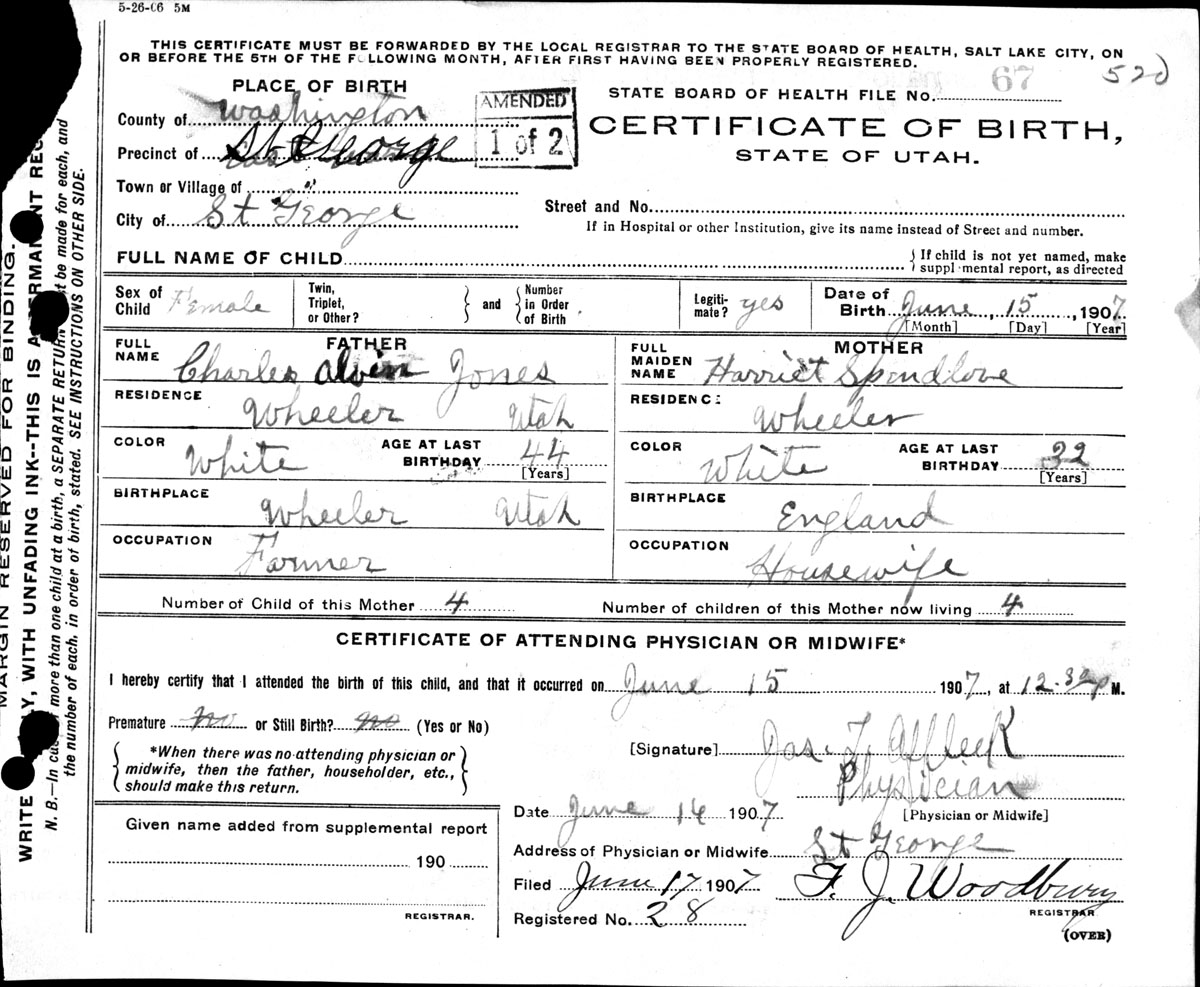 5-26-06 5M
THIS CERTIFICATE MUST BE FORWARDED BY THE LOCAL REGISTRAR TO THE STATE BOARD OF HEALTH, SALT LAKE CITY, ON
OR BEFORE THE 5TH OF THE FOLLOWING MONTH, AFTER FIRST HAVING BEEN PROPERLY REGISTERED.
520
PLACE OF BIRTH
STATE BOARD OF HEALTH FILE No. 67
County of Washington
AMENDED
1 of 2
CERTIFICATE OF BIRTH,
STATE OF UTAH.
Precinct of St George
Town or Village of
City of St George
Street and No.
If in Hospital or other Institution, give its name instead of Street and number.
FULL NAME OF CHILD
If child is not yet named, make
supplemental report, as directed
Sex of Child Female
Twin, Triplet, or Other?
and
Number in Order of Birth
Legiti-mate? yes
Date of Birth June, 15, 1907
[Month] [Day] [Year]
FATHER
FULL NAME Charles Alvin Jones
RESIDENCE Wheeler Utah
COLOR White AGE AT LAST BIRTHDAY 44
[Years]
BIRTHPLACE Wheeler Utah
OCCUPATION Farmer
MOTHER
FULL MAIDEN NAME Harriet Spendlove
RESIDENCE Wheeler
COLOR White AGE AT LAST BIRTHDAY 32
[Years]
BIRTHPLACE England
OCCUPATION Housewife
Number of Child of this Mother 4 Number of children of this Mother now living 4
CERTIFICATE OF ATTENDING PHYSICIAN OR MIDWIFE*
I hereby certify that I attended the birth of this child, and that it occurred on June 15 1907, at 12-32 P M.
Premature no or Still Birth? no (Yes or No)
*When there was no attending physician or
midwife, then the father, householder, etc.,
should make this return.
[Signature] Jas. F. Affleck
Physician
[Physician or Midwife]
Date June 14 1907
Address of Physician or Midwife St George
Filed June 17 1907 F. J. Woodbury
REGISTRAR
Registered No. 28
(OVER)
Given name added from supplemental report
190
REGISTRAR.
MARGIN RESERVED FOR BINDING.
WRITE LY, WITH UNFADING INK--THIS IS A PERMANENT REC
N. B.—In case more than one child at a birth, a SEPARATE RETURN must be made for each, and
the number of each, in order of birth, stated. SEE INSTRUCTIONS ON OTHER SIDE.